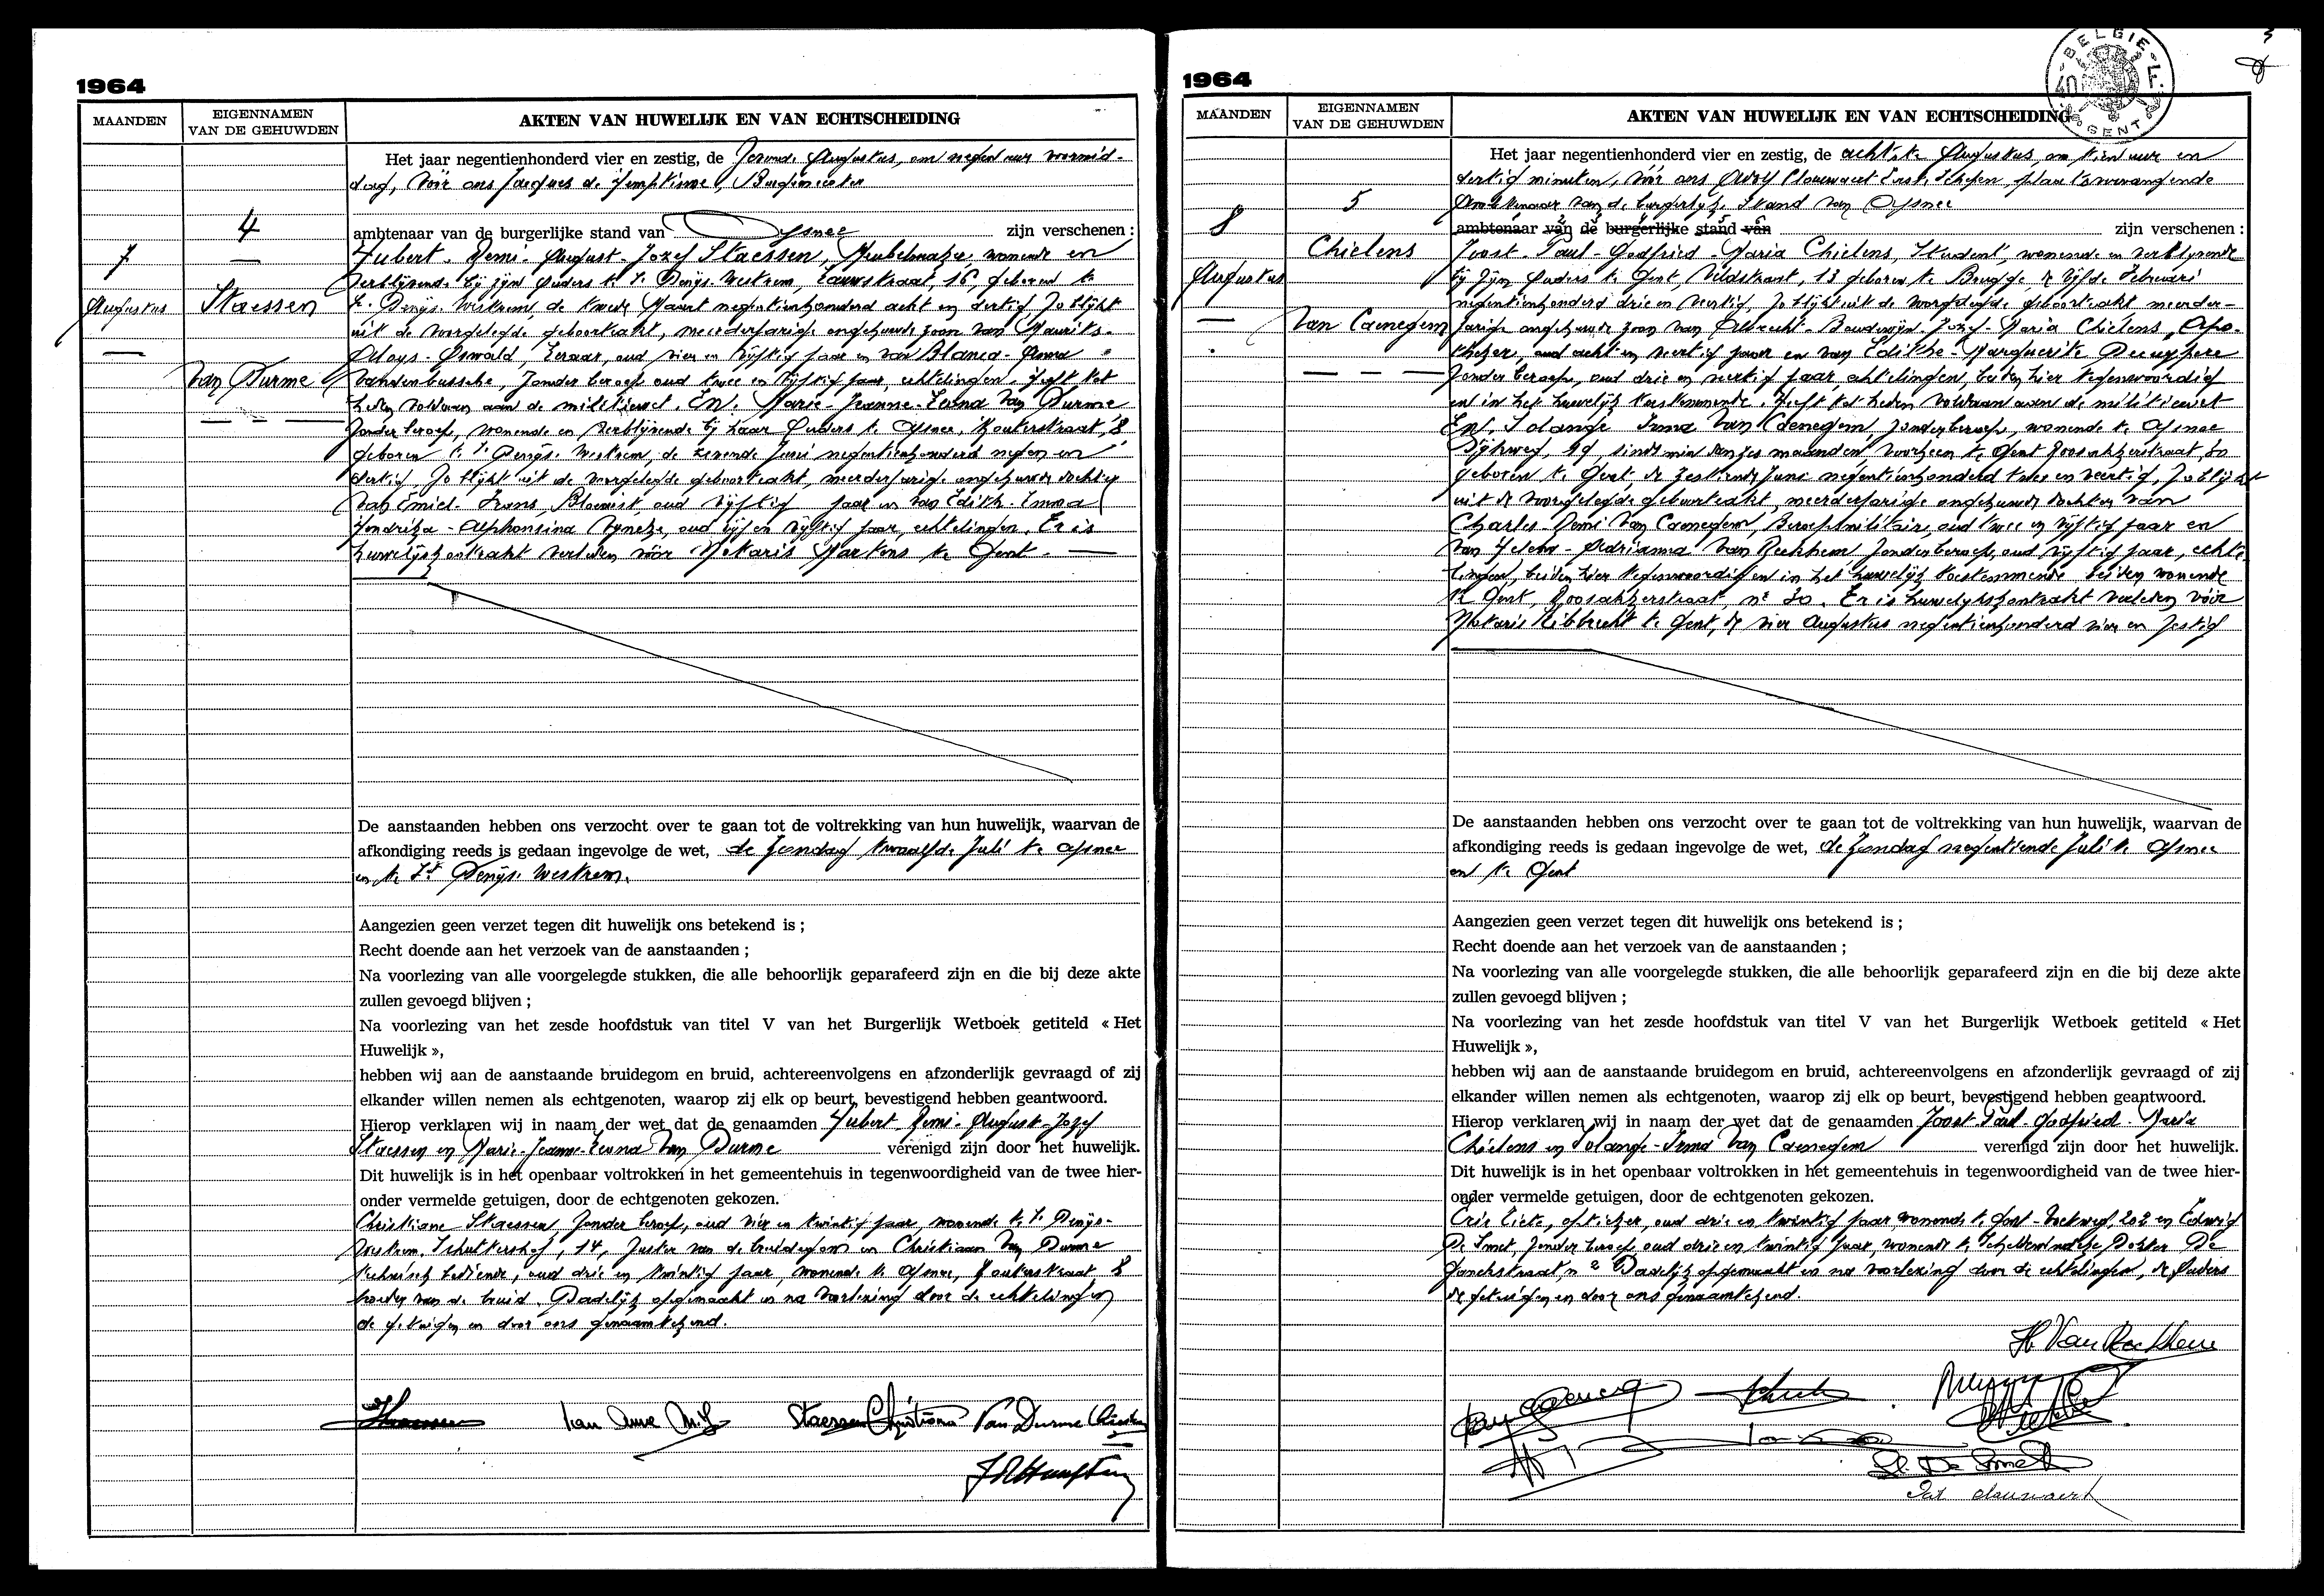 1964
MAANDEN
EIGENNAMEN
VAN DE GEHUWDEN
AKTEN VAN HUWELIJK EN VAN ECHTSCHEIDING
Het jaar negentienhonderd vier en zestig, de zevende Augustus, om negen uur voormid-
dag, vóór ons Jacques de Hemptinne, Burgemeester
4
ambtenaar van de burgerlijke stand van Afsnee zijn verschenen :
7
Augustus
Staessen
Van Durme
Hubert - Remi - August - Jozef Staessen, Meubelmaker, wonende en
verblijvende bij zijn Ouders te St Denijs Westrem, Lauwstraat, 16, geboren te
St Denijs Westrem, de tweede Maart negentienhonderd acht en dertig, zo blijkt
uit de voorgelegde geboorteakt, meerderjarige ongehuwde zoon van Maurits-
Oswald, Leraar, oud vier en vijftig jaar en van Blanca - Anna
Vandenbussche, zonder beroep oud twee en vijftig jaar, echtelingen. Heeft tot
heden voldaan aan de militiewet. En. Marie - Jeanne - Leona Van Durme
zonder beroep, wonende en verblijvende bij haar Ouders te Afsnee, Kouterstraat, 8
geboren te St Denijs Westrem, de zevende Juni negentienhonderd negen en
dertig, zo blijkt uit de voorgelegde geboorteakt, meerderjarige ongehuwde dochter
van Emiel - Frans, Bloemist, oud vijftig jaar en van Edith - Emma
Hendrika - Alphonsina oud vijf en vijftig jaar, echtelingen. Er is
huwelijkskontrakt verleden vóór Notaris Martens te Gent.
De aanstaanden hebben ons verzocht over te gaan tot de voltrekking van hun huwelijk, waarvan de
afkondiging reeds is gedaan ingevolge de wet, de Zondag twaalfde Juli te Afsnee
en te St Denijs Westrem.
Aangezien geen verzet tegen dit huwelijk ons betekend is ;
Recht doende aan het verzoek van de aanstaanden ;
Na voorlezing van alle voorgelegde stukken, die alle behoorlijk geparafeerd zijn en die bij deze akte
zullen gevoegd blijven ;
Na voorlezing van het zesde hoofdstuk van titel V van het Burgerlijk Wetboek getiteld « Het
Huwelijk »,
hebben wij aan de aanstaande bruidegom en bruid, achtereenvolgens en afzonderlijk gevraagd of zij
elkander willen nemen als echtgenoten, waarop zij elk op beurt, bevestigend hebben geantwoord.
Hierop verklaren wij in naam der wet dat de genaamden Hubert - Remi - August - Jozef
Staessen en Marie - Jeanne - Leona Van Durme verenigd zijn door het huwelijk.
Dit huwelijk is in het openbaar voltrokken in het gemeentehuis in tegenwoordigheid van de twee hier-
onder vermelde getuigen, door de echtgenoten gekozen.
Christiane Staessen zonder beroep, oud vier en twintig jaar, wonende te St Denijs-
Westrem, Schuttershof, 14, zuster van de bruidegom en Christiaan Van Durme
technisch bediende, oud drie en twintig jaar, wonende te Afsnee, Kouterstraat, 8
broeder van de bruid. Dadelijk opgemaakt en na voorlezing door de echtelingen
de getuigen en door ons genaamtekend.
Staessen Christiane Van Durme
1964
BELGIE
GENT
MAANDEN
EIGENNAMEN
VAN DE GEHUWDEN
AKTEN VAN HUWELIJK EN VAN ECHTSCHEIDING
Het jaar negentienhonderd vier en zestig, de achtste Augustus, om tien uur en
dertig minuten, vóór ons Adolf Claerwaert Eerste Schepen, plaatsvervangende
Ambtenaar van de burgerlijke Stand van Afsnee
5
ambtenaar van de burgerlijke stand van zijn verschenen :
8
Augustus
Chielens
Van Caenegem
Joost - Paul - Godfried - Maria Chielens, Student, wonende en verblijvende
bij zijn Ouders te Gent, Veldstraat, 13 geboren te Brugge, de vijfde Februari
negentienhonderd drie en veertig, zo blijkt uit de voorgelegde geboorteakt meerder-
jarige ongehuwde zoon van Albrecht - Boudewijn - Jozef - Maria Chielens, Apo-
theker, oud acht en veertig jaar en van Edithe - Marguerite Decuypere
zonder beroep, oud drie en veertig jaar echtelingen, beiden hier tegenwoordig
en in het huwelijk toestemmende. Heeft tot heden voldaan aan de militiewet
En. Solange Irma Van Caenegem zonder beroep, wonende te Afsnee
Dijkweg, 19 sindsmin dan zes maanden voorheen te Gent Roosakkerstraat, 30
geboren te Gent, de zestiende Juni negentienhonderd twee en veertig, zo blijkt
uit de voorgelegde geboorteakt, meerderjarige ongehuwde dochter van
Charles - Remi Van Caenegem, Beroepsmilitair, oud twee en vijftig jaar en
van Helena - Adrianna Van Reckhem, zonder beroep, oud vijftig jaar, echte-
lingen, beiden hier tegenwoordig en in het huwelijk toestemmende beiden wonende
te Gent, Roosakkerstraat, nr 30. Er is huwelijkskontrakt verleden vóór
Notaris Nibbrecht te Gent, de vier Augustus negentienhonderd vier en zestig
De aanstaanden hebben ons verzocht over te gaan tot de voltrekking van hun huwelijk, waarvan de
afkondiging reeds is gedaan ingevolge de wet, de Zondag negentiende Juli te Afsnee
en te Gent
Aangezien geen verzet tegen dit huwelijk ons betekend is ;
Recht doende aan het verzoek van de aanstaanden ;
Na voorlezing van alle voorgelegde stukken, die alle behoorlijk geparafeerd zijn en die bij deze akte
zullen gevoegd blijven ;
Na voorlezing van het zesde hoofdstuk van titel V van het Burgerlijk Wetboek getiteld « Het
Huwelijk »,
hebben wij aan de aanstaande bruidegom en bruid, achtereenvolgens en afzonderlijk gevraagd of zij
elkander willen nemen als echtgenoten, waarop zij elk op beurt, bevestigend hebben geantwoord.
Hierop verklaren wij in naam der wet dat de genaamden Joost - Paul - Godfried - Maria
Chielens en Solange - Irma Van Caenegem verenigd zijn door het huwelijk.
Dit huwelijk is in het openbaar voltrokken in het gemeentehuis in tegenwoordigheid van de twee hier-
onder vermelde getuigen, door de echtgenoten gekozen.
Cris optieker, oud drie en twintig jaar wonende te Gent - 202 en Edwig
De Smet, zonder beroep oud drie en twintig jaar, wonende te Schellewindeke Dokter De
nr 2 Dadelijk opgemaakt en na voorlezing door de echtelingen, de Ouders
de getuigen en door ons genaamtekend.
H. Van Reckhem
De Smet